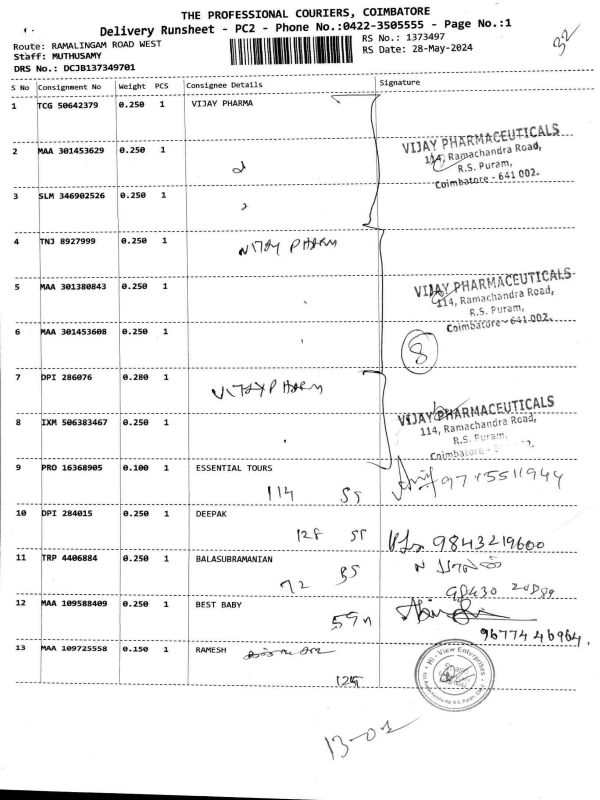 THE PROFESSIONAL COURIERS, COIMBATORE
Delivery Runsheet - PC2 - Phone No.:0422-3505555 - Page No.:1
Route: RAMALINGAM ROAD WEST
RS No.: 1373497
Staff: MUTHUSAMY
RS Date: 28-May-2024
32
DRS No.: DCJB137349701
S No Consignment No Weight PCS Consignee Details Signature
1 TCG 50642379 0.250 1 VIJAY PHARMA
2 MAA 301453629 0.250 1
VIJAY PHARMACEUTICALS
114, Ramachandra Road,
R.S. Puram,
Coimbatore - 641 002.
3 SLM 346902526 0.250 1
4 TNJ 8927999 0.250 1 VIJAY PHARM
5 MAA 301380843 0.250 1
VIJAY PHARMACEUTICALS
114, Ramachandra Road,
R.S. Puram,
Coimbatore - 641 002.
6 MAA 301453608 0.250 1
8
7 DPI 286076 0.280 1 VIJAY PHARM
VIJAY PHARMACEUTICALS
114, Ramachandra Road,
R.S. Puram,
Coimbatore -
8 IXM 506383467 0.250 1
9 PRO 16368905 0.100 1 ESSENTIAL TOURS
114 SS 9715511944
10 DPI 284015 0.250 1 DEEPAK
128 9843219600
11 TRP 4406884 0.250 1 BALASUBRAMANIAN
72
12 MAA 109588409 0.250 1 BEST BABY
59
96774 46964.
13 MAA 109725558 0.150 1 RAMESH
Hi - View Enterprises
13-02